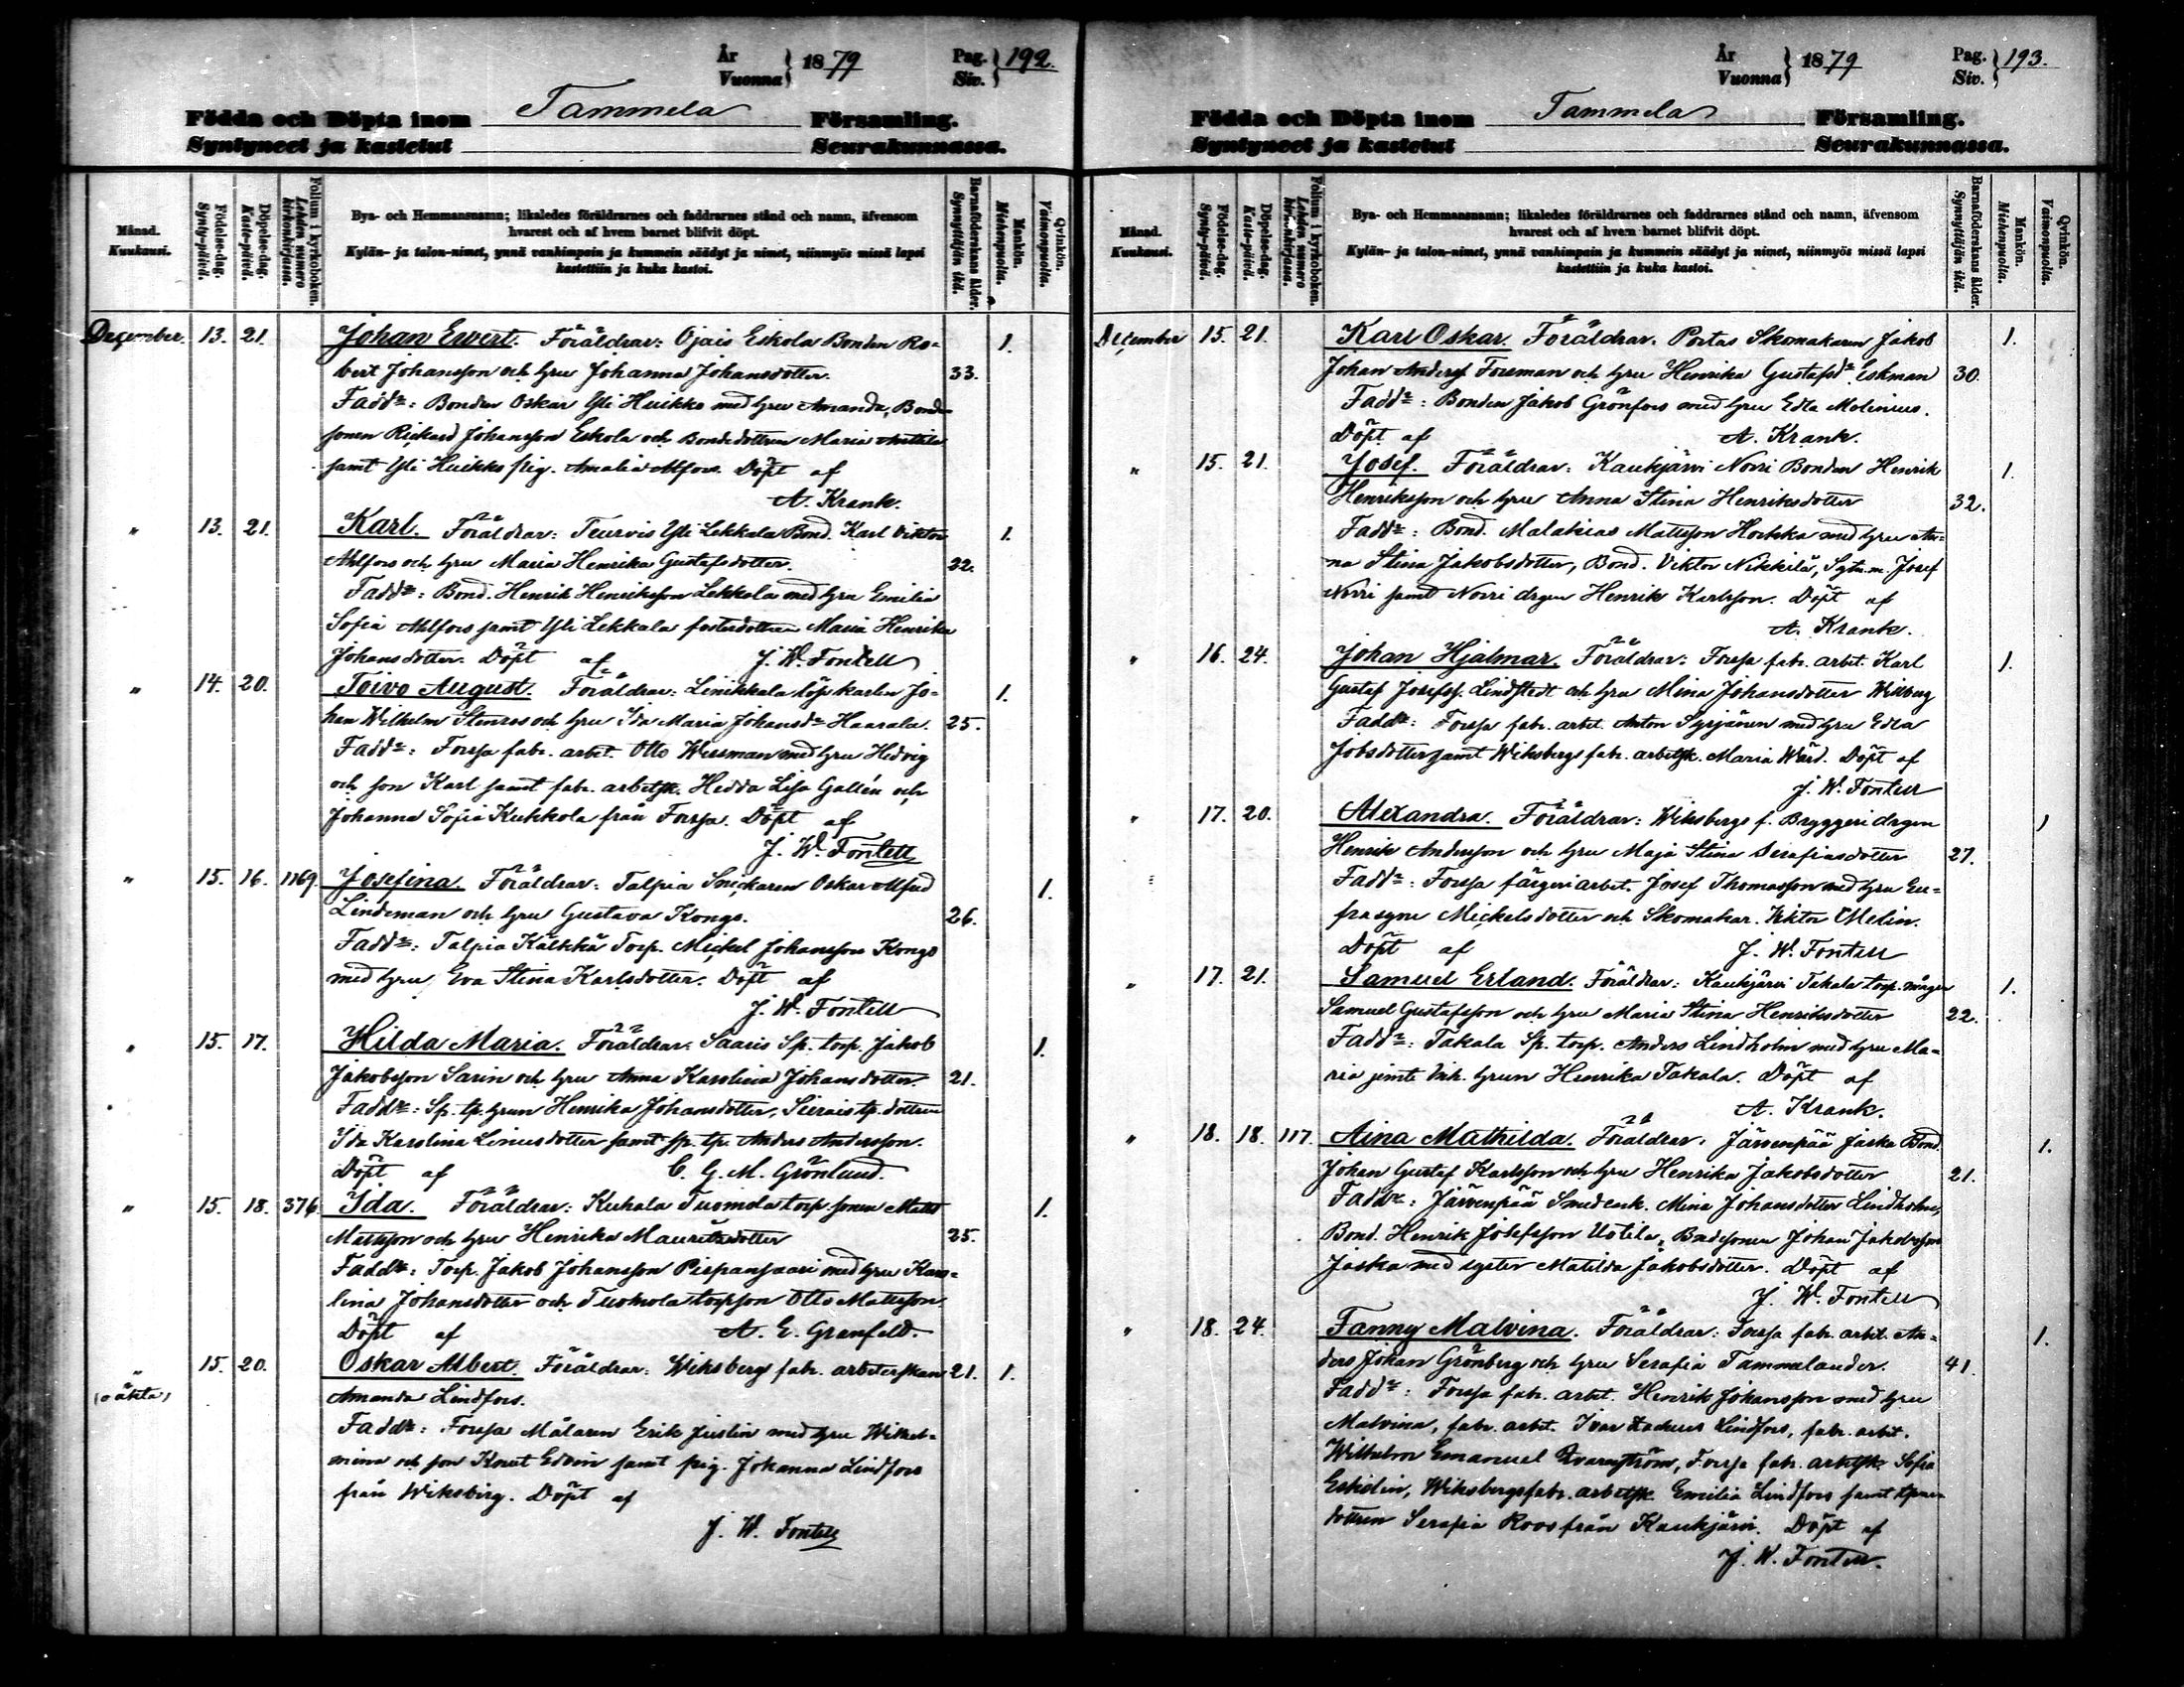 År
Vuonna } 1879 Pag.
Siv. } 192.
Födda och Döpta inom Tammela Församling.
Syntyneet ja kastetut Seurakunnassa.
Månad.
Kuukausi.
Födelse-dag.
Synty-päivä.
Döpelse-dag.
Kaste-päivä.
Folium i kyrkoboken.
Lehden numero kirkonkirjassa.
Bya- och Hemmansnamn; likaledes föräldrarnes och faddrarnes stånd och namn, äfvensom
hvarest och af hvem barnet blifvit döpt.
Kylän- ja talon-nimet, ynnä vanhimpain ja kummein säädyt ja nimet, niinmyös missä lapsi
kastettiin ja kuka kastoi.
Barnaföderskans ålder.
Synnyttäjän ikä.
Mankön.
Miehenpuolta.
Qvinkön.
Vaimonpuolta.
December. 13. 21. Johan Ewert. Föräldrar: Ojais Eskola Bonden Ro- 1.
bert Johansson och hru Johanna Johansdotter. 33.
Faddr: Bonden Oskar Yli Huikko med hru Amanda, Bonde
sonen Rickard Johansson Eskola och Bondedottren Maria Anttila
samt Yli Huikko pig. Amalia Alfors. Döpt af
A. Krank.
" 13. 21. Karl. Föräldrar: Teuro Yli Lekkala Bond. Karl Viktor 1.
Ahlfors och hru Maria Henrika Gustafsdotter. 22.
Faddr: Bond. Henrik Henriksson Lekkala med hru Emilia
Sofia Ahlfors samt Yli Lekkala fosterdottren Maria Henrika
Johansdotter. Döpt af J. W. Fontell
" 14. 20. Toivo August. Föräldrar: Linikkala lösp karlen Jo- 1.
han Wilhelm Stenroos och hru Ida Maria Johansdr Haarala. 25.
Faddr: Forssa fabr. arbet. Otto Wessman med hru Hedvig
och son Karl samt fabr. arbetsk. Hedda Lisa Gallén och
Johanna Sofia Kukkola från Forssa. Döpt af
J. W. Fontell
" 15. 16. 1169. Josefina. Föräldrar: Talpia Snickaren Oskar Alfred 1.
Lindeman och hru Gustava Kongo. 26.
Faddr: Talpia Kälkkä Torp. Mickel Johansson Kongo
med hru Eva Stina Karlsdotter. Döpt af
J. W. Fontell
" 15. 17. Hilda Maria. Föräldrar: Saaris Sp. torp. Jakob 1.
Jakobsson Sarin och hru Anna Karolina Johansdotter. 21.
Faddr: Sp. tp. hrun Henrika Johansdotter, tp. dottren
Ida Karolina Linusdotter samt sp. tp. Anders Andersson.
Döpt af C. G. M. Grönlund.
" 15. 18. 376. Ida. Föräldrar: Kuhala Tuomola torp. sonen Matts 1.
Mattsson och hru Henrika Mauritzdotter 25.
Faddr: Torp. Jakob Johansson Pispansaari med hru Karo-
lina Johansdotter och Tuomola torpson Otto Mattsson.
Döpt af A. E. Granfelt.
" 15. 20. Oskar Albert. Föräldrar: Wiksberg fabr. arbeterskan 21. 1.
(oäkta) Amanda Lindfors.
Faddr: Forssa Målaren Erik Juslin med hru Wilhel-
mina och son Knut Edvin samt pig. Johanna Lindfors
från Wiksberg. Döpt af
J. W. Fontell
År
Vuonna } 1879 Pag.
Siv. } 193.
Födda och Döpta inom Tammela Församling.
Syntyneet ja kastetut Seurakunnassa.
Månad.
Kuukausi.
Födelse-dag.
Synty-päivä.
Döpelse-dag.
Kaste-päivä.
Folium i kyrkoboken.
Lehden numero kirkonkirjassa.
Bya- och Hemmansnamn; likaledes föräldrarnes och faddrarnes stånd och namn, äfvensom
hvarest och af hvem barnet blifvit döpt.
Kylän- ja talon-nimet, ynnä vanhimpain ja kummein säädyt ja nimet, niinmyös missä lapsi
kastettiin ja kuka kastoi.
Barnaföderskans ålder.
Synnyttäjän ikä.
Mankön.
Miehenpuolta.
Qvinkön.
Vaimonpuolta.
December 15. 21. Karl Oskar. Föräldrar. Portas Skomakaren Jakob 1.
Johan Anderss Forsman och hru Henrika Gustafsdr Eskman 30.
Faddr: Bonden Jakob Grönfors med hru Edla Molinius.
Döpt af A. Krank.
" 15. 21. Josef. Föräldrar: Kaukjärvi Novri Bonden Henrik 1.
Henriksson och hru Anna Stina Henriksdotter 32.
Faddr: Bond. Malakias Mattsson Hokka med hru An-
na Stina Jakobsdotter, Bond. Viktor Nikkilä, Sytn.m. Josef
Novri samt Novri drgen Henrik Karlsson. Döpt af
A. Krank.
" 16. 24. Johan Hjalmar. Föräldrar: Forssa fabr. arbet. Karl 1.
Gustaf Josefss. Lindstedt och hru Mina Johansdotter Willberg
Faddr: Forssa fabr. arbet. Anton Syrjänen med hru Edla
Jobsdotter samt Wiksbergs fabr. arbetsk. Maria Wärd. Döpt af
J. W. Fontell
" 17. 20. Alexandra. Föräldrar: Wiksbergs f. Bryggeri drgen 1
Henrik Andersson och hru Maja Stina Serafiasdotter 27.
Faddr: Forssa färgeri arbet. Josef Thomasson med hru Eu-
frasyne Mickelsdotter och Skomakar. Viktor Melin.
Döpt af J. W. Fontell
" 17. 21. Samuel Erland. Föräldrar: Kaukjärvi Takala torp. mågen 1.
Samuel Gustafsson och hru Maria Stina Henriksdotter 22.
Faddr: Takala Sp. torp. Anders Lindholm med hru Ma-
ria jemte Enk. hrun Henrika Takala. Döpt af
A. Krank.
" 18. 18. 117. Aina Mathilda. Föräldrar: Järvenpää Jaska Bond. 1.
Johan Gustaf Karlsson och hru Henrika Jakobsdotter 21.
Faddr: Järvenpää Smed enk. Mina Johansdotter Lindholm,
Bond. Henrik Josefsson Uotila, Bondesonen Johan Jakobsson
Jaska med syster Matilda Jakobsdotter. Döpt af
J. W. Fontell
" 18. 24. Fanny Malvina. Föräldrar: Forssa fabr. arbet. An- 1.
ders Johan Grönberg och hru Serafia Tammelander. 41.
Faddr: Forssa fabr. arbet. Henrik Johansson med hru
Malvina, fabr. arbet. Ivar Lindfors, fabr. arbet.
Wilhelm Emanuel Qvarnström, Forssa fabr. arbetsk. Sofia
Eskolin, Wiksbergs fabr. arbetsk. Emilia Lindfors samt
dottren Serafia Roos från Kaukjärvi. Döpt af
J. W. Fontell.